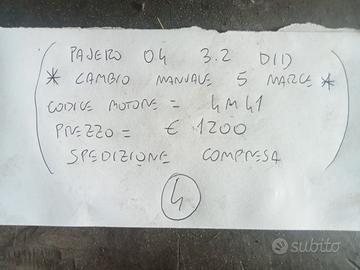 PAJERO 04 3.2 DID
* CAMBIO MANUALE 5 MARCE *
CODICE MOTORE = 4M41
PREZZO = € 1200
SPEDIZIONE COMPRESA
4
subito